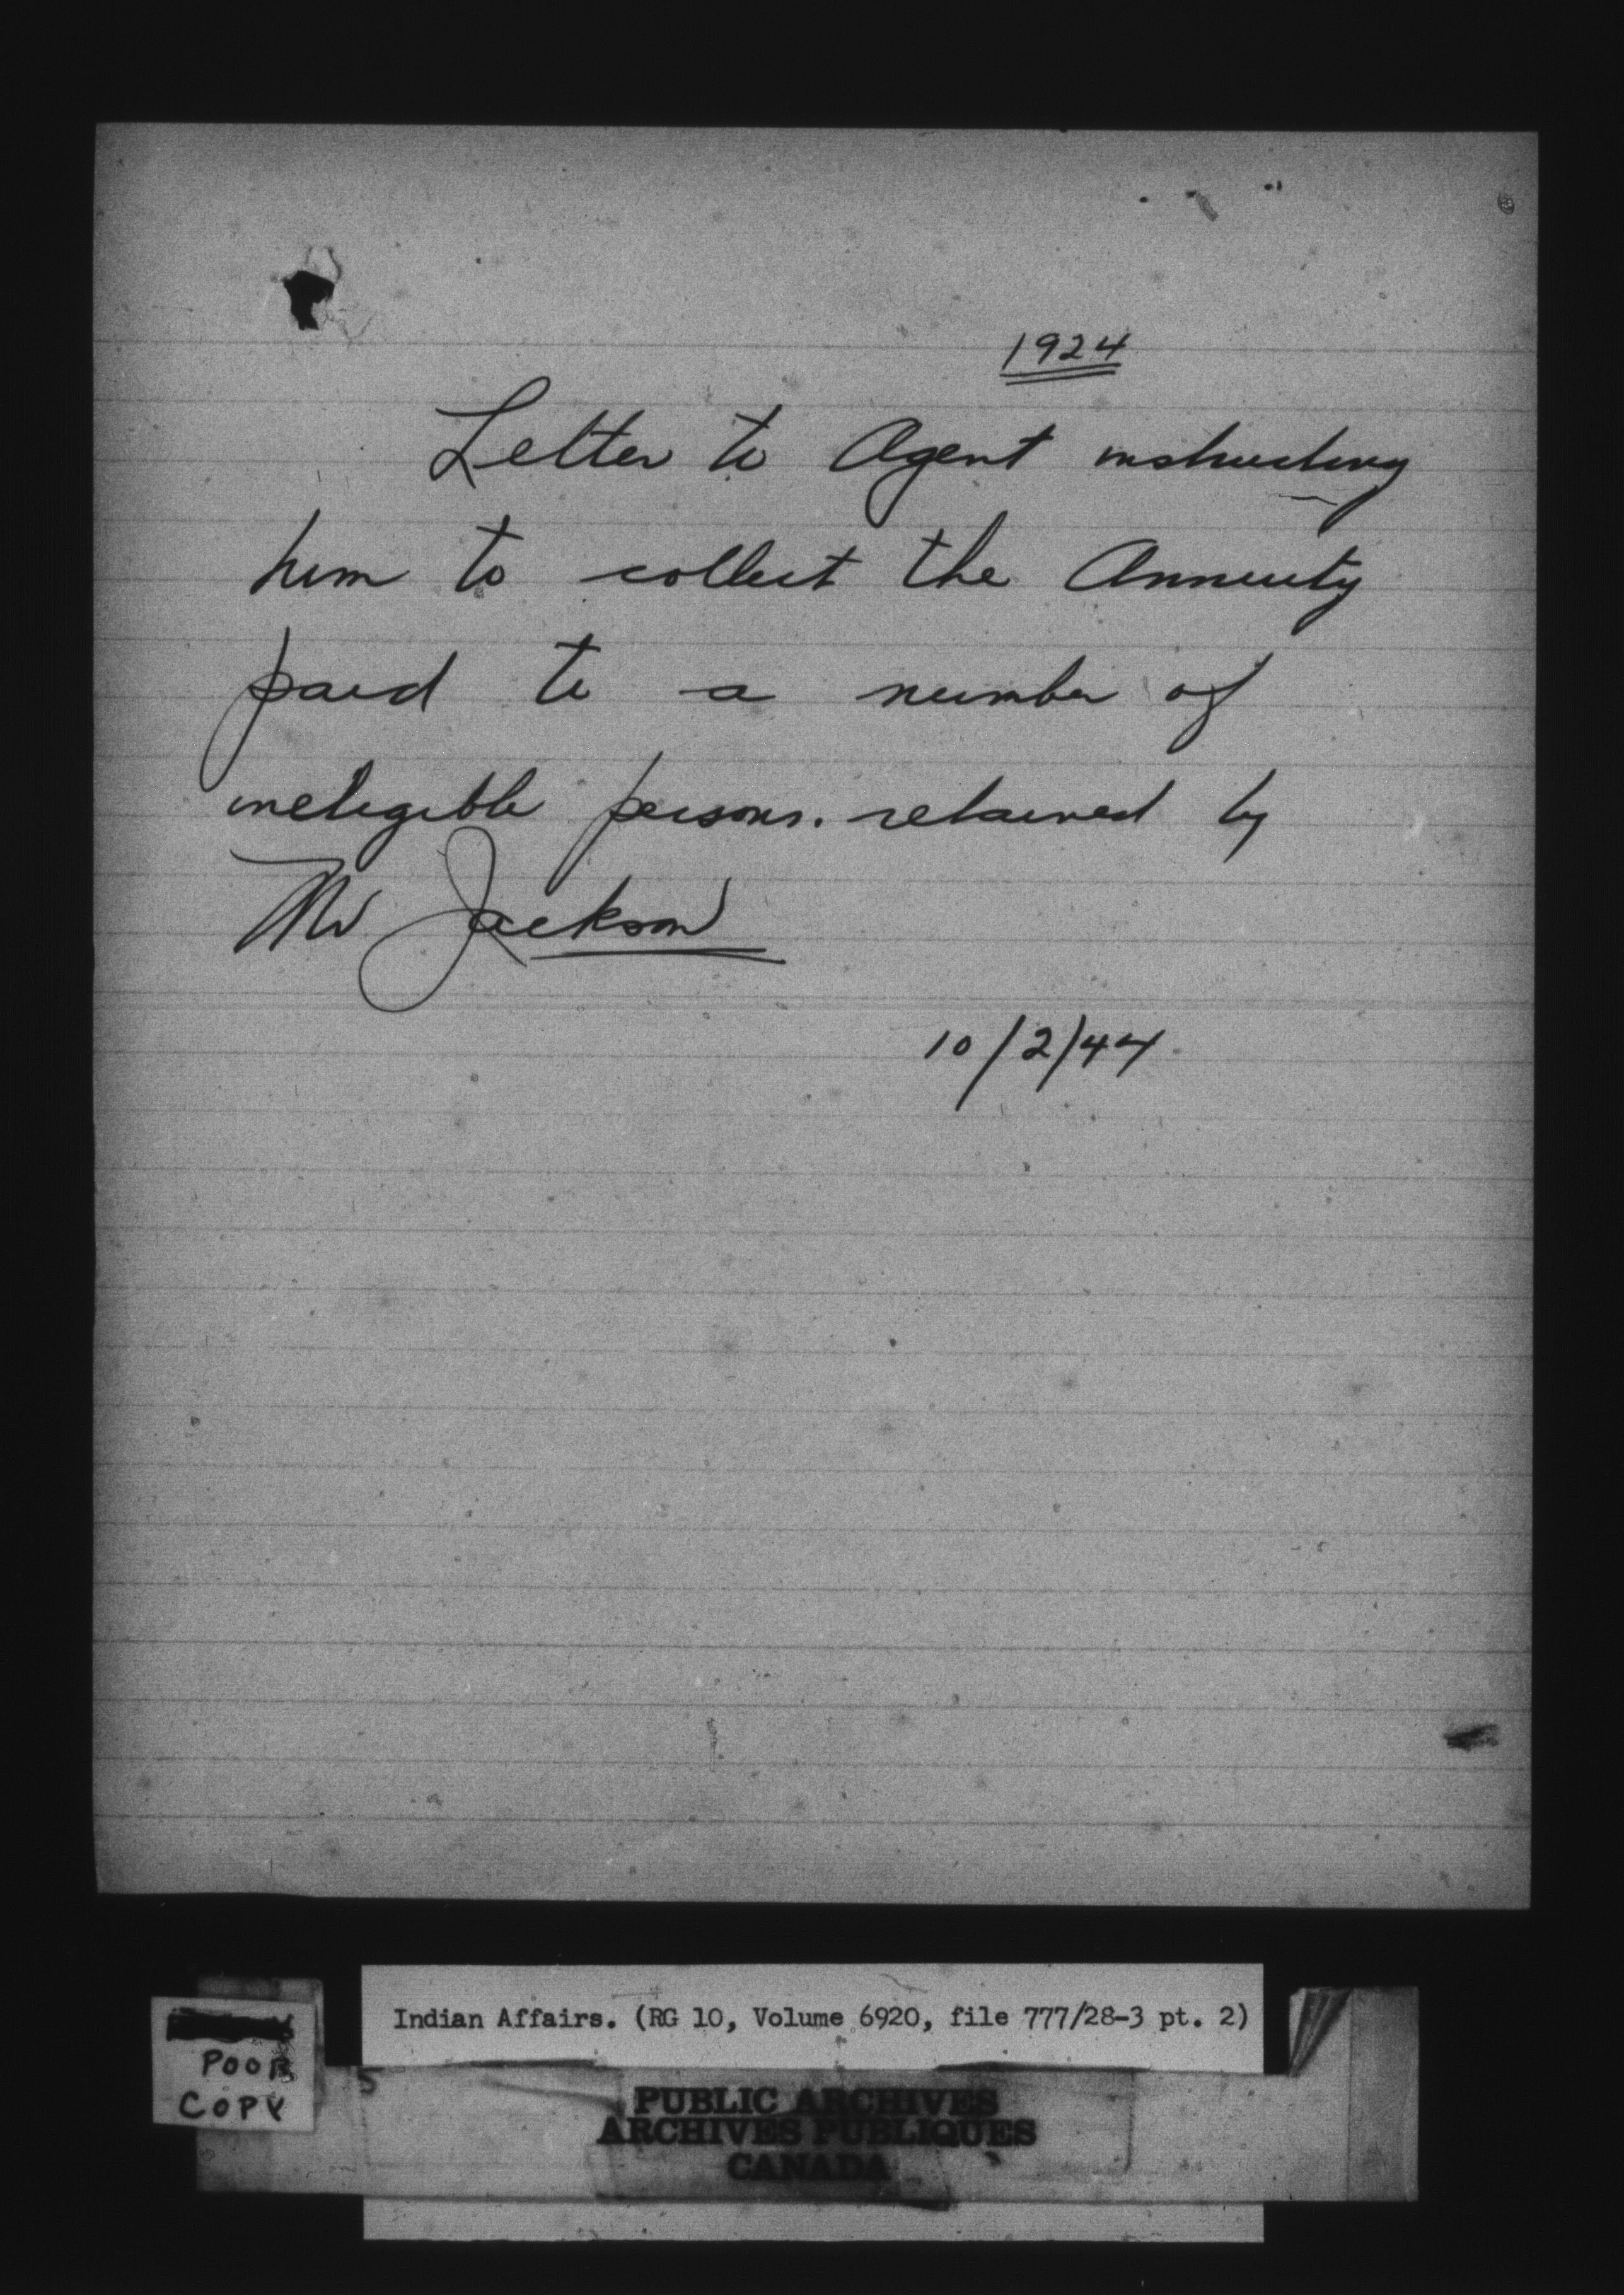 1924
Letter to Agent instructing
him to collect the Annuity
paid to a number of
ineligible persons. retained by
Mr Jackson
10/2/44
Indian Affairs. (RG 10, Volume 6920, file 777/28-3 pt. 2)
POOR
COPY
PUBLIC ARCHIVES
ARCHIVES PUBLIQUES
CANADA